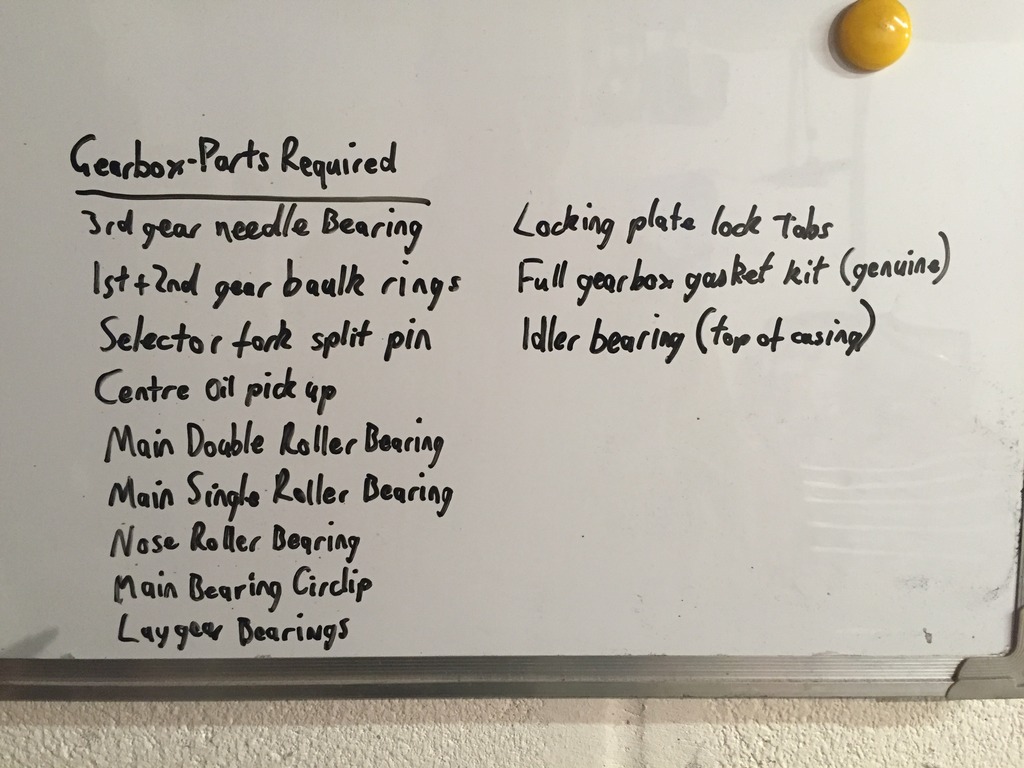 Gearbox-Parts Required
3rd gear needle Bearing
1st + 2nd gear baulk rings
Selector fork split pin
Centre Oil pick up
Main Double Roller Bearing
Main Single Roller Bearing
Nose Roller Bearing
Main Bearing Circlip
Lay gear Bearings
Locking plate lock Tabs
Full gearbox gasket kit (genuine)
Idler bearing (top of casing)